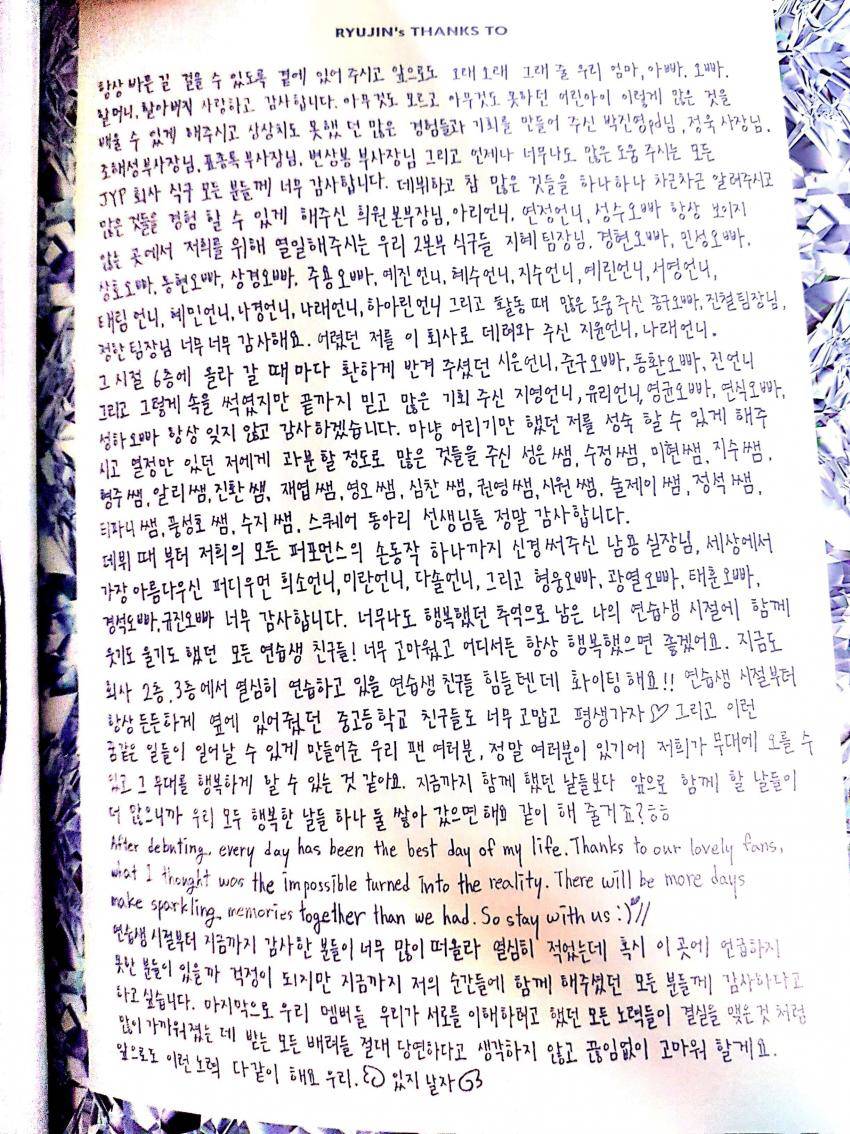 RYUJIN's THANKS TO
항상 바른 길 걸을 수 있도록 곁에 있어 주시고 앞으로도 오래 오래 그래 줄 우리 엄마, 아빠, 오빠,
할머니, 할아버지 사랑하고 감사합니다. 아무것도 모르고 아무것도 못하던 어린아이 이렇게 많은 것을
배울 수 있게 해주시고 상상치도 못했던 많은 경험들과 기회를 만들어 주신 박진영pd님, 정욱 사장님,
조해성 부사장님, 표종록 부사장님, 변상봉 부사장님 그리고 언제나 너무나도 많은 도움 주시는 모든
JYP 회사 식구 모든 분들께 너무 감사합니다. 데뷔하고 참 많은 것들을 하나하나 차근차근 알려주시고
많은 것들을 경험 할 수 있게 해주신 희원본부장님, 아리언니, 연정언니, 성수오빠 항상 보이지
않는 곳에서 저희를 위해 열일해주시는 우리 2본부 식구들 지혜 팀장님, 경현오빠, 민성오빠,
상호오빠, 동현오빠, 상경오빠, 주용오빠, 예진 언니, 혜수언니, 지수언니, 예린언니, 서영언니,
태림 언니, 혜민언니, 나경언니, 나래언니, 하아린언니 그리고 활동 때 많은 도움 주신 종구오빠, 진철팀장님,
정한 팀장님 너무 너무 감사해요. 어렸던 저를 이 회사로 데려와 주신 지윤언니, 나래언니.
그 시절 6층에 올라 갈 때 마다 환하게 반겨 주셨던 시은언니, 준구오빠, 동환오빠, 진언니
그리고 그렇게 속을 썩였지만 끝까지 믿고 많은 기회 주신 지영언니, 유리언니, 영균오빠, 연식오빠,
성하오빠 항상 잊지 않고 감사하겠습니다. 마냥 어리기만 했던 저를 성숙 할 수 있게 해주
시고 열정만 있던 저에게 과분할 정도로 많은 것들을 주신 성은 쌤, 수정쌤, 미현쌤, 지수쌤,
형주쌤, 알리쌤, 진환쌤, 재엽쌤, 영오쌤, 심찬 쌤, 권영쌤, 시원쌤, 술제이쌤, 정석 쌤,
티파니쌤, 풍성호쌤, 수지쌤, 스퀘어 동아리 선생님들 정말 감사합니다.
데뷔 때 부터 저희의 모든 퍼포먼스의 손동작 하나까지 신경써주신 남용 실장님, 세상에서
가장 아름다우신 퍼디우먼 희소언니, 미란언니, 다솔언니, 그리고 형웅오빠, 광열오빠, 태훈오빠,
경석오빠, 규진오빠 너무 감사합니다. 너무나도 행복했던 추억으로 남은 나의 연습생 시절에 함께
웃기도 울기도 했던 모든 연습생 친구들! 너무 고마웠고 어디서든 항상 행복했으면 좋겠어요. 지금도
회사 2층, 3층에서 열심히 연습하고 있을 연습생 친구들 힘들텐데 화이팅 해요!! 연습생 시절부터
항상 든든하게 옆에 있어줬던 중고등학교 친구들도 너무 고맙고 평생가자♡ 그리고 이런
꿈같은 일들이 일어날 수 있게 만들어준 우리 팬 여러분, 정말 여러분이 있기에 저희가 무대에 오를 수
있고 그 무대를 행복하게 할 수 있는 것 같아요. 지금까지 함께 했던 날들보다 앞으로 함께 할 날들이
더 많으니까 우리 모두 행복한 날들 하나 둘 쌓아 갔으면 해요 같이 해 줄거죠? ㅎㅎ
After debuting, every day has been the best day of my life. Thanks to our lovely fans,
what I thought was the impossible turned into the reality. There will be more days
make sparkling memories together than we had. So stay with us :)"//
연습생 시절부터 지금까지 감사한 분들이 너무 많이 떠올라 열심히 적었는데 혹시 이 곳에 언급하지
못한 분들이 있을까 걱정이 되지만 지금까지 저의 순간들에 함께 해주셨던 모든 분들께 감사하다고
하고 싶습니다. 마지막으로 우리 멤버들 우리가 서로를 이해하려고 했던 모든 노력들이 결실을 맺은것 처럼
많이 가까워졌는 데 받는 모든 배려들 절대 당연하다고 생각하지 않고 끊임없이 고마워 할게요.
앞으로도 이런 노력 다같이 해요 우리. 있지 날자